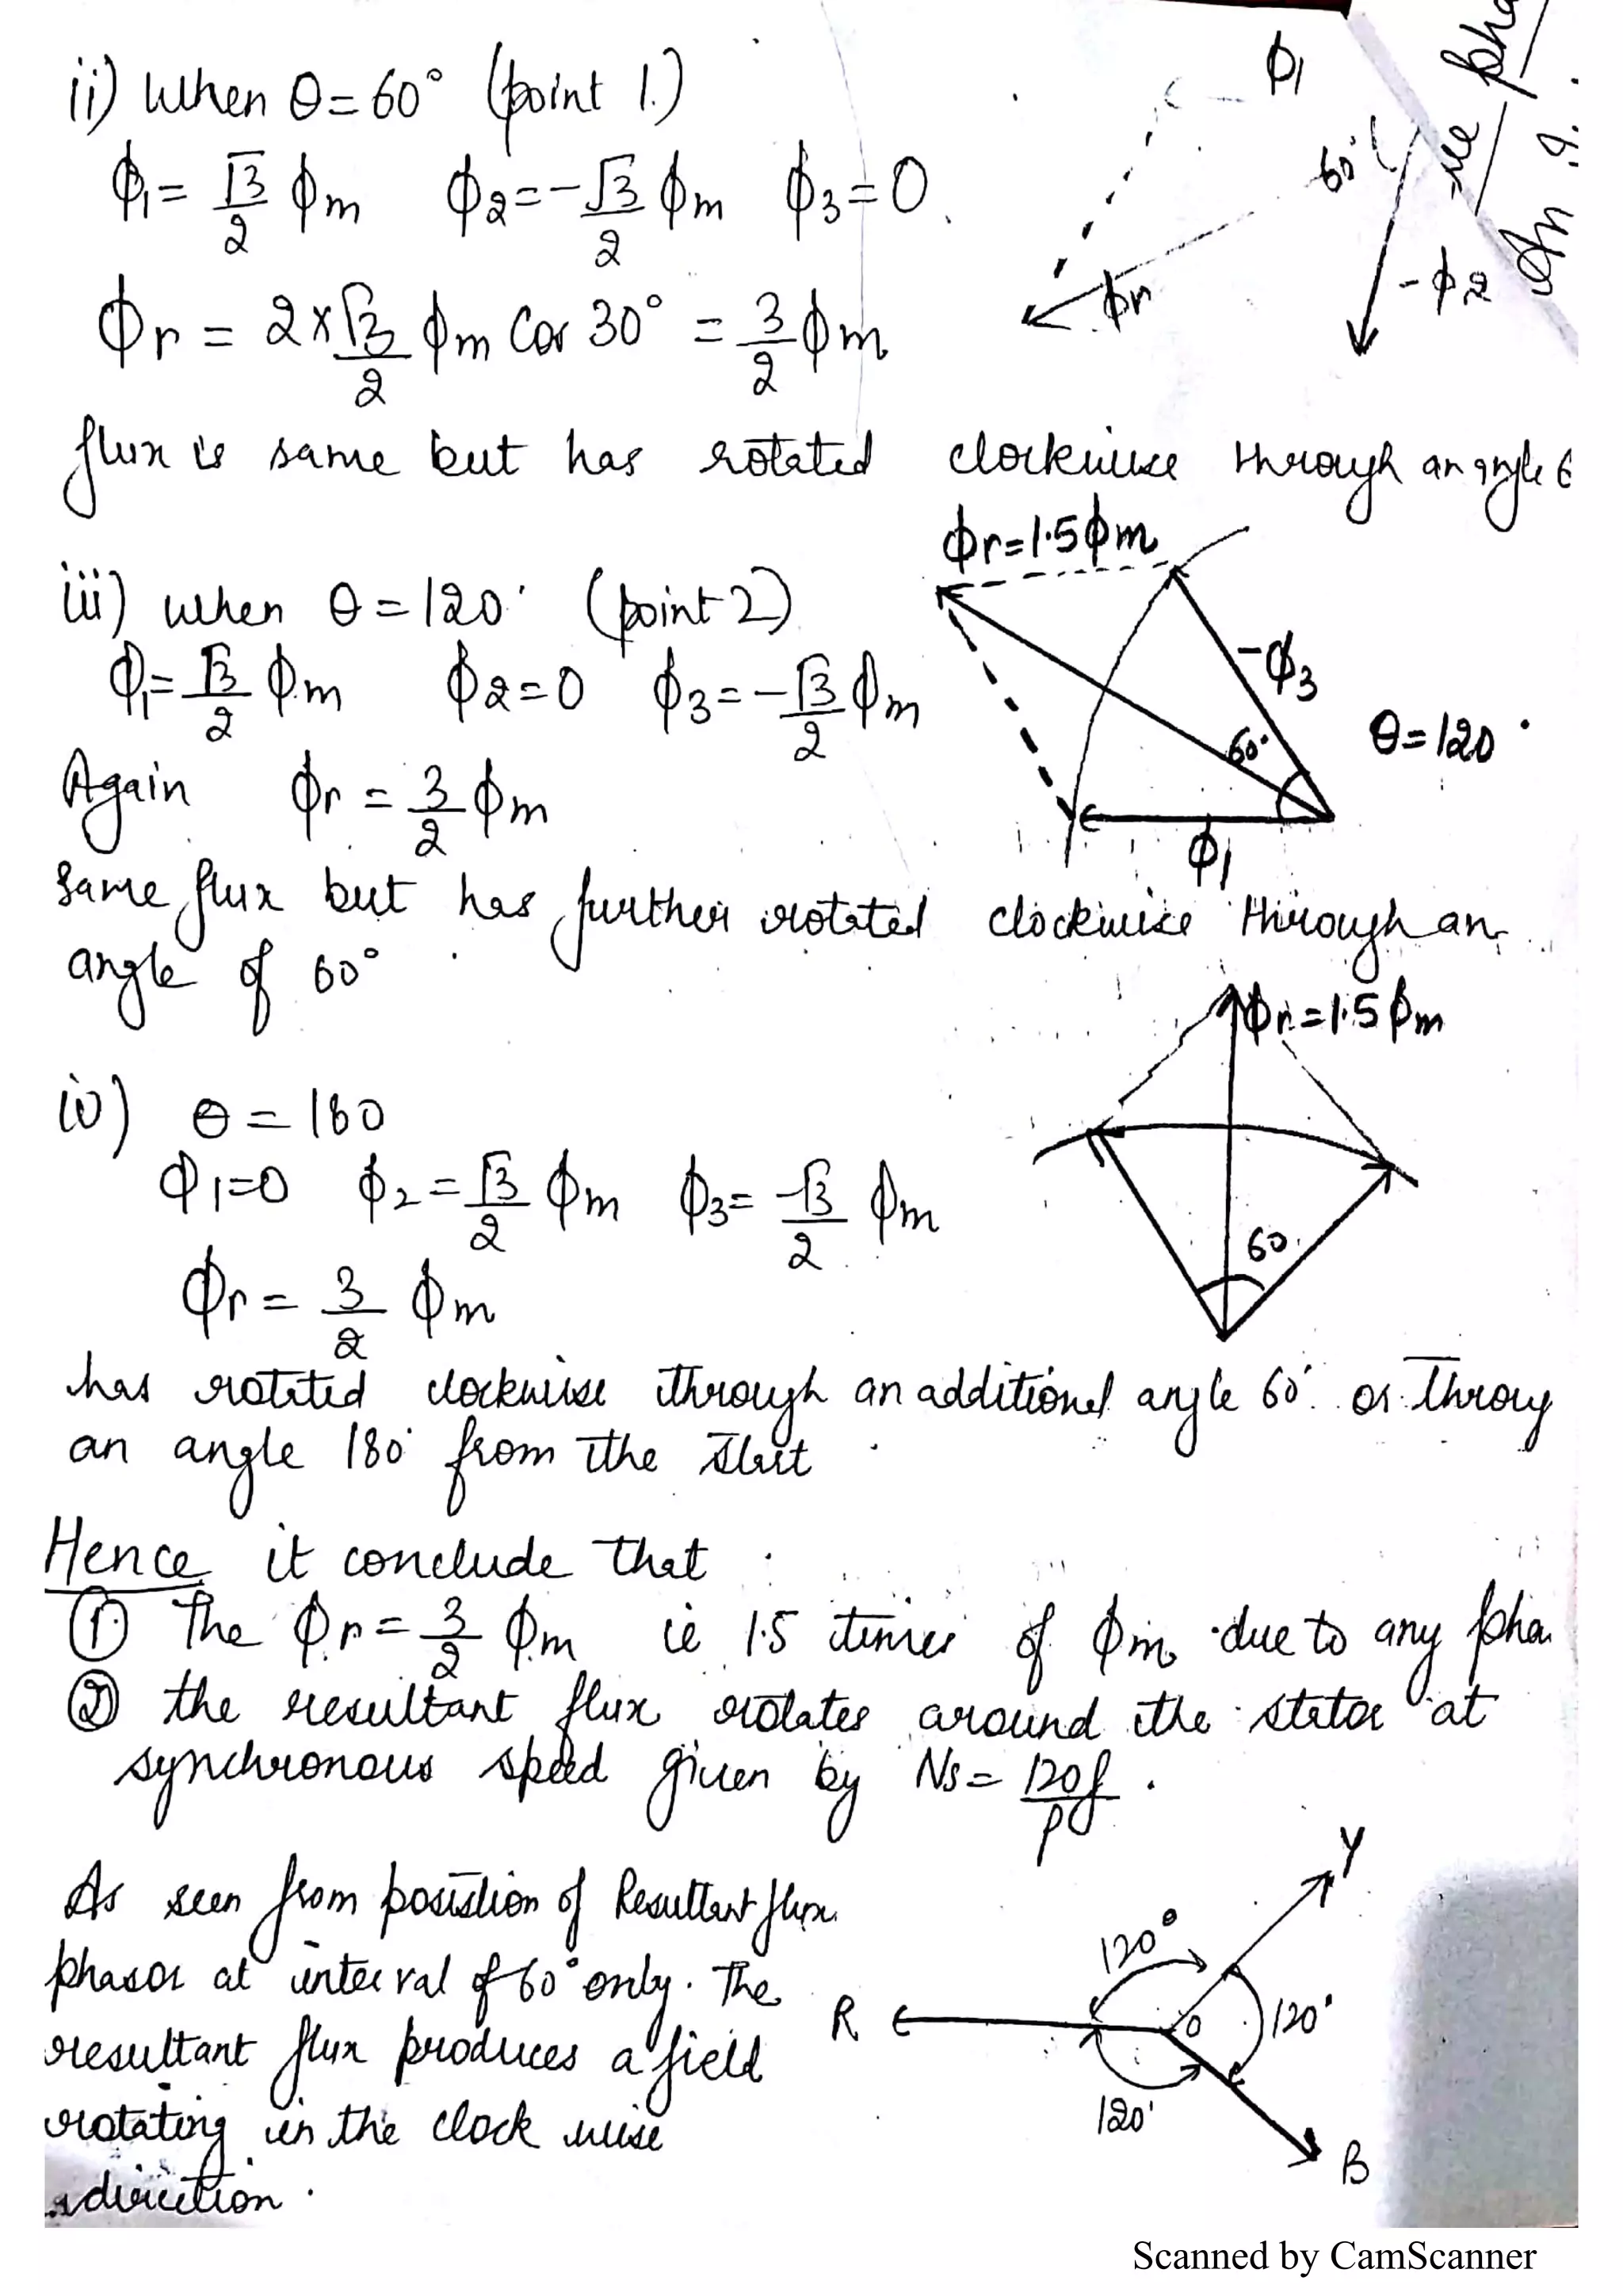 ii) When θ=60° (point 1.)
ϕ1= √3/2 ϕm ϕ2=-√3/2 ϕm ϕ3=0.
ϕr = 2×√3/2 ϕm Cos 30° = 3/2 ϕm
ϕ1
60°
-ϕ2
ϕr
-ve pha
flux is same but has rotated clockwise through an angle 6
iii) when θ=120° (point 2)
ϕ1=√3/2 ϕm ϕ2=0 ϕ3=-√3/2 ϕm
Again ϕr = 3/2 ϕm
ϕr=1.5ϕm
-ϕ3
60°
θ=120°
ϕ1
Same flux but has further rotated clockwise through an
angle of 60°
iv) θ = 180
ϕ1=0 ϕ2=√3/2 ϕm ϕ3= -√3/2 ϕm
ϕr = 3/2 ϕm
ϕr=1.5ϕm
60
has rotated clockwise through an additional angle 60° or throug
an angle 180° from the start
Hence it conclude that
① The ϕr= 3/2 ϕm ie 1.5 times of ϕm due to any pha
② the resultant flux rotates around the stator at
synchronous speed given by Ns= 120f/P.
As seen from posistion of Resultant flux
phasor at interval of 60° only. The
resultant flux produces a field
rotating in the clock wise
direction.
Y
120°
R
O
120°
120°
B
Scanned by CamScanner